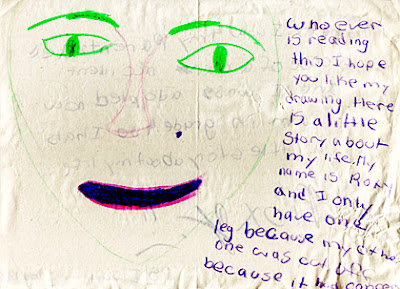 Whoever
is reading
this I hope
you like my
drawing Here
is a little
Story about
my life. My
name is
and I only
have one
leg because my other
one was cut off
because it had cancer